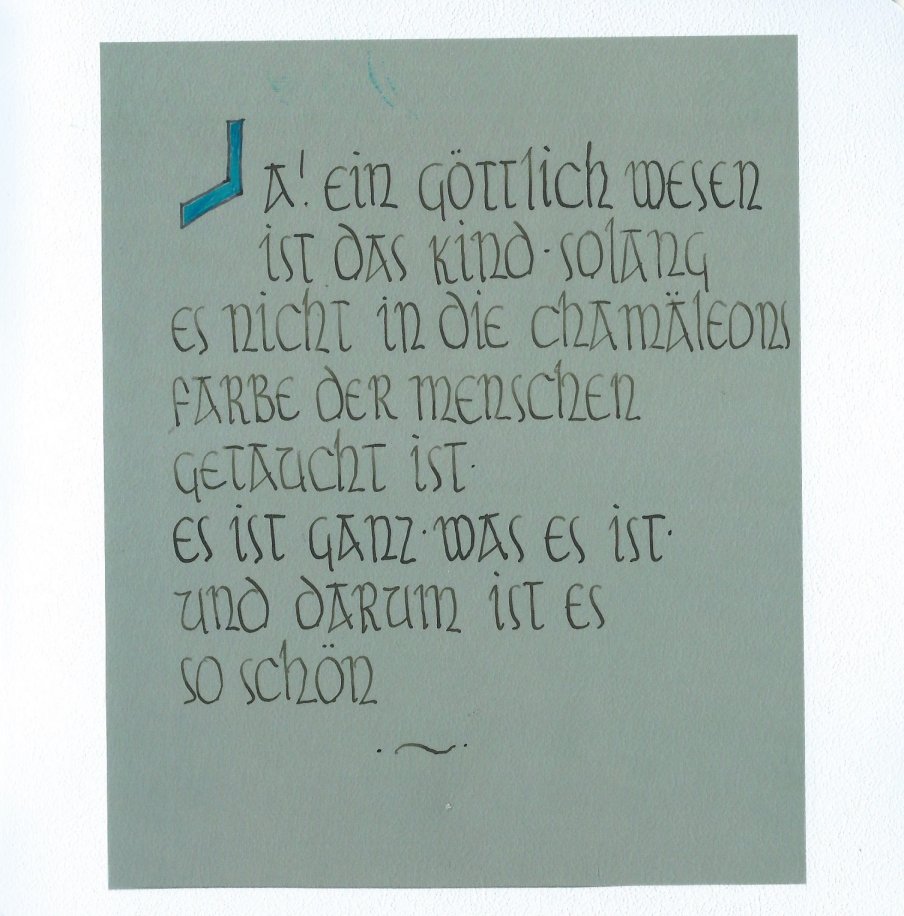 Ja! Ein göttlich Wesen
ist das Kind · solang
es nicht in die Chamäleons
Farbe der Menschen
getaucht ist ·
es ist ganz · was es ist ·
und darum ist es
so schön